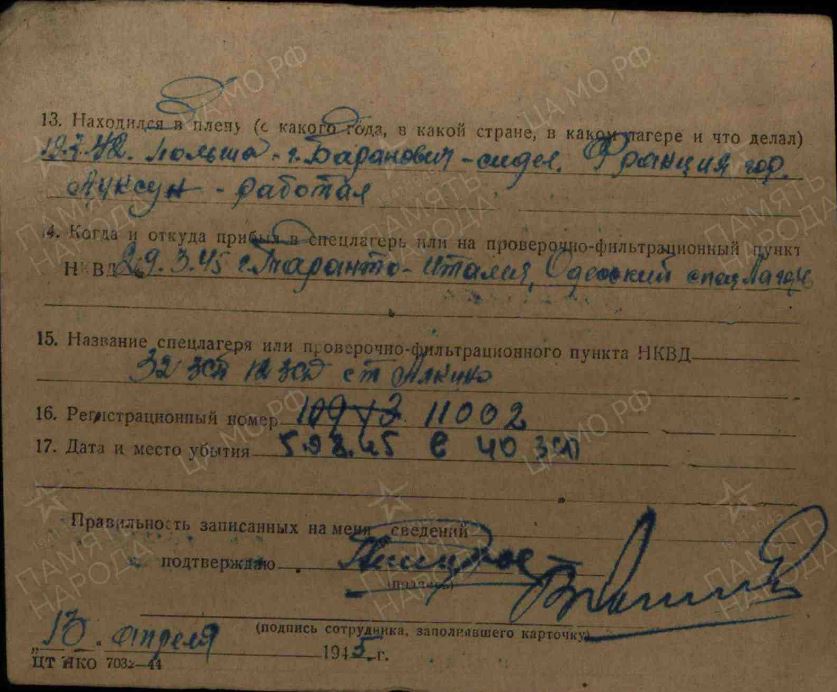 13. Находился в плену (с какого года, в какой стране, в каком лагере и что делал)
Польша - г. Баранович - сидел. Франция гор.
- работал
4. Когда и откуда прибыл в спецлагерь или на проверочно-фильтрационный пункт
НКВД 29.3.45 г. Таранто - Италия, Одесский спец лагерь
15. Название спецлагеря или проверочно-фильтрационного пункта НКВД
32 зсп 12 зсд ст Алкино
16. Регистрационный номер 11002
17. Дата и место убытия в 40 зсп
Правильность записанных на меня сведений
подтверждаю
(подпись)
(подпись сотрудника, заполнявшего карточку)
апреля 1945 г.
ЦТ НКО 7032—44
ЦА МО РФ
ПАМЯТЬ НАРОДА